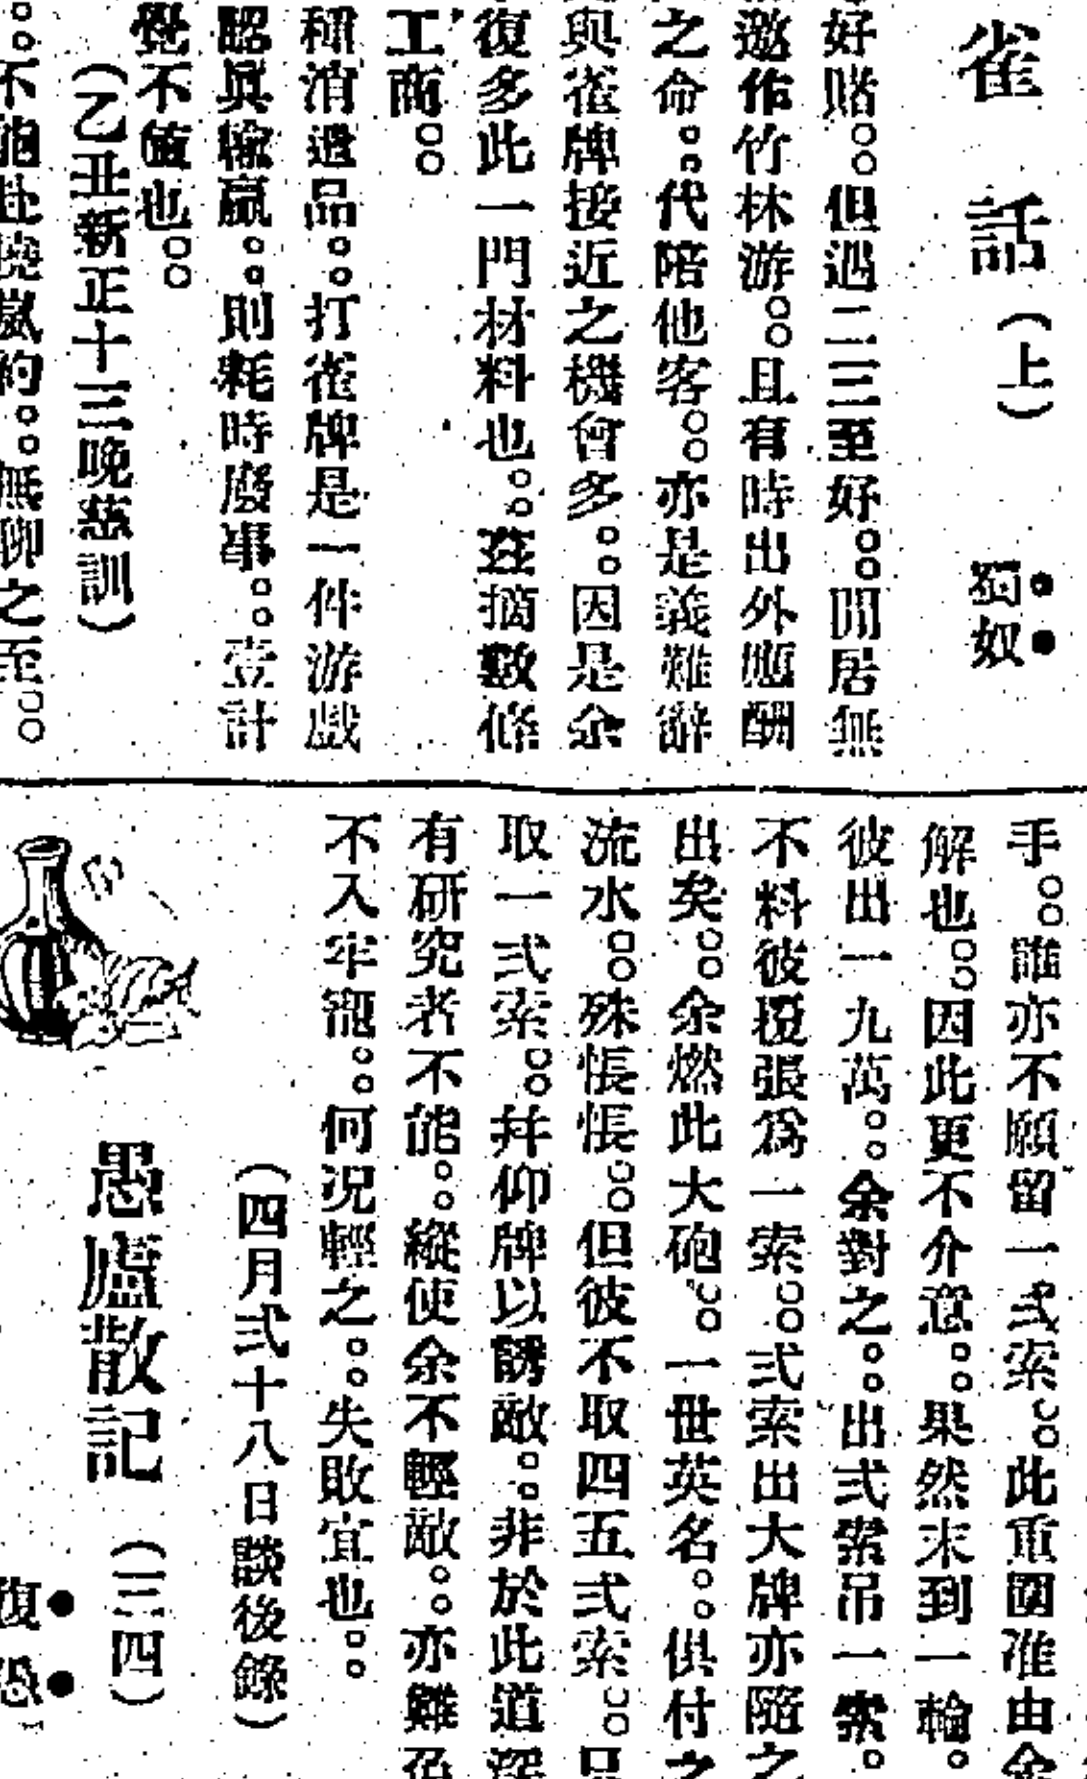 雀話（上）
獨奴
好賭。。但遇二三至好。。閒居無
邀作竹林游。。且有時出外應酬
之命。。代陪他客。。亦是義難辭
與雀牌接近之機會多。。因是余
復多此一門材料也。。茲摘數條
工商。。
種消遣品。。打雀牌是一件游戲
認眞輸贏。。則耗時廢事。。壹計
覺不值也。。
（乙丑新正十三晚慈訓）
不能赴曉嵐約。。無聊之至。。
手。。誰亦不願留一弍索。。此重圍准由余
解也。。因此更不介意。。果然末到一輪。
彼出一九萬。。余對之。。出弍索吊一索。
不料彼擾張爲一索。。弍索出大牌亦隨之
出矣。。余燃此大砲。。一世英名。。俱付之
流水。。殊悵悵。。但彼不取四五弍索。。只
取一弍索。。幷仰牌以誘敵。。非於此道深
有研究者不能。。縱使余不輕敵。。亦難免
不入牢籠。。何況輕之。。失敗宜也。。
（四月弍十八日談後錄）
愚廬散記（三四）